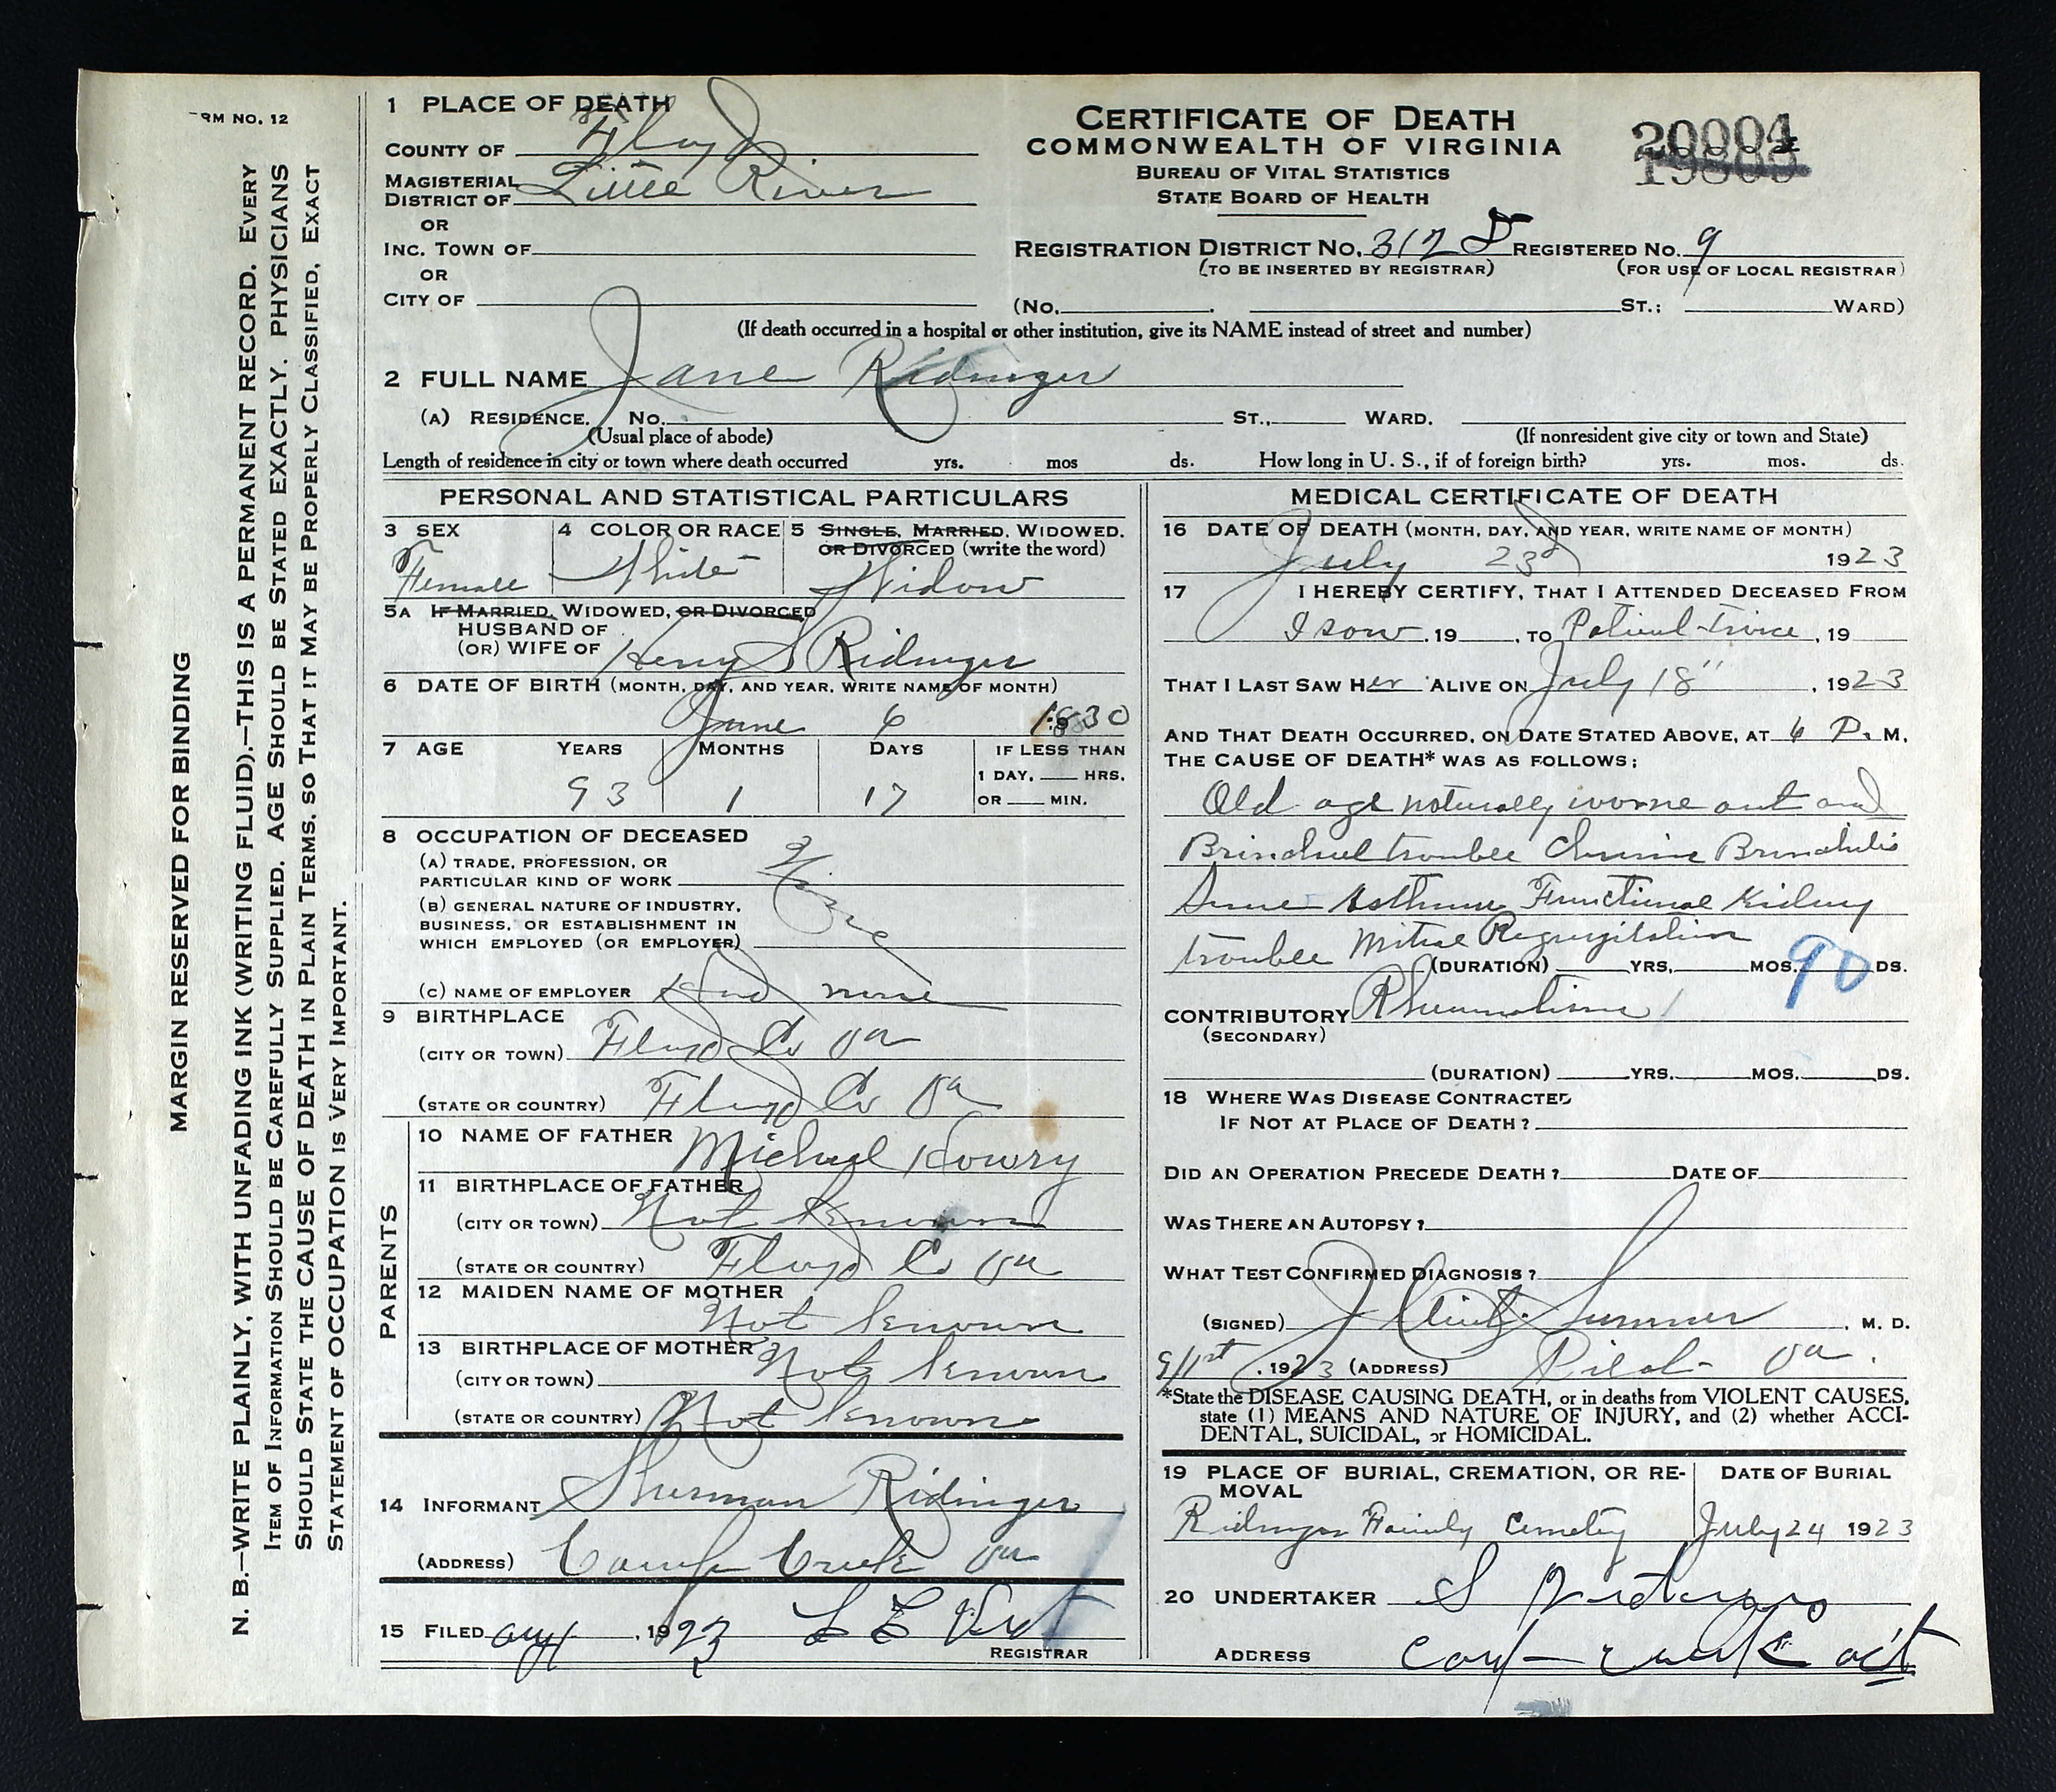 RM NO. 12
MARGIN RESERVED FOR BINDING
N. B.—WRITE PLAINLY, WITH UNFADING INK (WRITING FLUID).—THIS IS A PERMANENT RECORD. EVERY
ITEM OF INFORMATION SHOULD BE CAREFULLY SUPPLIED. AGE SHOULD BE STATED EXACTLY. PHYSICIANS
SHOULD STATE THE CAUSE OF DEATH IN PLAIN TERMS, SO THAT IT MAY BE PROPERLY CLASSIFIED. EXACT
STATEMENT OF OCCUPATION IS VERY IMPORTANT.
1 PLACE OF DEATH
COUNTY OF Floyd
MAGISTERIAL
DISTRICT OF Little River
OR
INC. TOWN OF
OR
CITY OF
CERTIFICATE OF DEATH
COMMONWEALTH OF VIRGINIA
BUREAU OF VITAL STATISTICS
STATE BOARD OF HEALTH
20004
REGISTRATION DISTRICT NO. 312 D REGISTERED NO. 9
(TO BE INSERTED BY REGISTRAR) (FOR USE OF LOCAL REGISTRAR)
(No. ST.; WARD)
(If death occurred in a hospital or other institution, give its NAME instead of street and number)
2 FULL NAME Jane Ridinger
(A) RESIDENCE. No. ST., WARD.
(Usual place of abode) (If nonresident give city or town and State)
Length of residence in city or town where death occurred yrs. mos ds. How long in U. S., if of foreign birth? yrs. mos. ds.
PERSONAL AND STATISTICAL PARTICULARS
3 SEX 4 COLOR OR RACE 5 SINGLE, MARRIED, WIDOWED,
OR DIVORCED (write the word)
Female White Widow
5A IF MARRIED, WIDOWED, OR DIVORCED
HUSBAND OF
(OR) WIFE OF Henry S Ridinger
6 DATE OF BIRTH (MONTH, DAY, AND YEAR, WRITE NAME OF MONTH)
June 6 1830
7 AGE YEARS MONTHS DAYS IF LESS THAN
1 DAY, HRS.
OR MIN.
93 1 17
8 OCCUPATION OF DECEASED
(A) TRADE, PROFESSION, OR
PARTICULAR KIND OF WORK
(B) GENERAL NATURE OF INDUSTRY,
BUSINESS, OR ESTABLISHMENT IN
WHICH EMPLOYED (OR EMPLOYER)
(C) NAME OF EMPLOYER Had none
9 BIRTHPLACE
(CITY OR TOWN) Floyd Co Va
(STATE OR COUNTRY) Floyd Co Va
PARENTS
10 NAME OF FATHER Michael Howry
11 BIRTHPLACE OF FATHER
(CITY OR TOWN) Not known
(STATE OR COUNTRY) Floyd Co Va
12 MAIDEN NAME OF MOTHER
Not known
13 BIRTHPLACE OF MOTHER
(CITY OR TOWN) Not known
(STATE OR COUNTRY) Not known
14 INFORMANT Sherman Ridinger
(ADDRESS) Camp Creek Va
15 FILED Aug 1, 1923 L E
REGISTRAR
MEDICAL CERTIFICATE OF DEATH
16 DATE OF DEATH (MONTH, DAY, AND YEAR, WRITE NAME OF MONTH)
July 23d 1923
17 I HEREBY CERTIFY, THAT I ATTENDED DECEASED FROM
I saw, 19 , TO Patient twice, 19
THAT I LAST SAW HER ALIVE ON July 18", 1923
AND THAT DEATH OCCURRED, ON DATE STATED ABOVE, AT 6 P. M.
THE CAUSE OF DEATH* WAS AS FOLLOWS:
Old age naturally worne out and
Brinchiel trouble Chronic Bronchitis
Some Asthma Functional Kidney
trouble Mitral Regurgitation
(DURATION) YRS. MOS. DS.
90
CONTRIBUTORY Rheumatism
(SECONDARY)
(DURATION) YRS. MOS. DS.
18 WHERE WAS DISEASE CONTRACTED
IF NOT AT PLACE OF DEATH?
DID AN OPERATION PRECEDE DEATH? DATE OF
WAS THERE AN AUTOPSY?
WHAT TEST CONFIRMED DIAGNOSIS?
(SIGNED) J Clint Summer, M. D.
9/1st, 1923 (ADDRESS) Pilot Va.
*State the DISEASE CAUSING DEATH, or in deaths from VIOLENT CAUSES,
state (1) MEANS AND NATURE OF INJURY, and (2) whether ACCI-
DENTAL, SUICIDAL, or HOMICIDAL.
19 PLACE OF BURIAL, CREMATION, OR RE-
MOVAL
DATE OF BURIAL
Ridinger Family Cemetey July 24 1923
20 UNDERTAKER S
ADDRESS